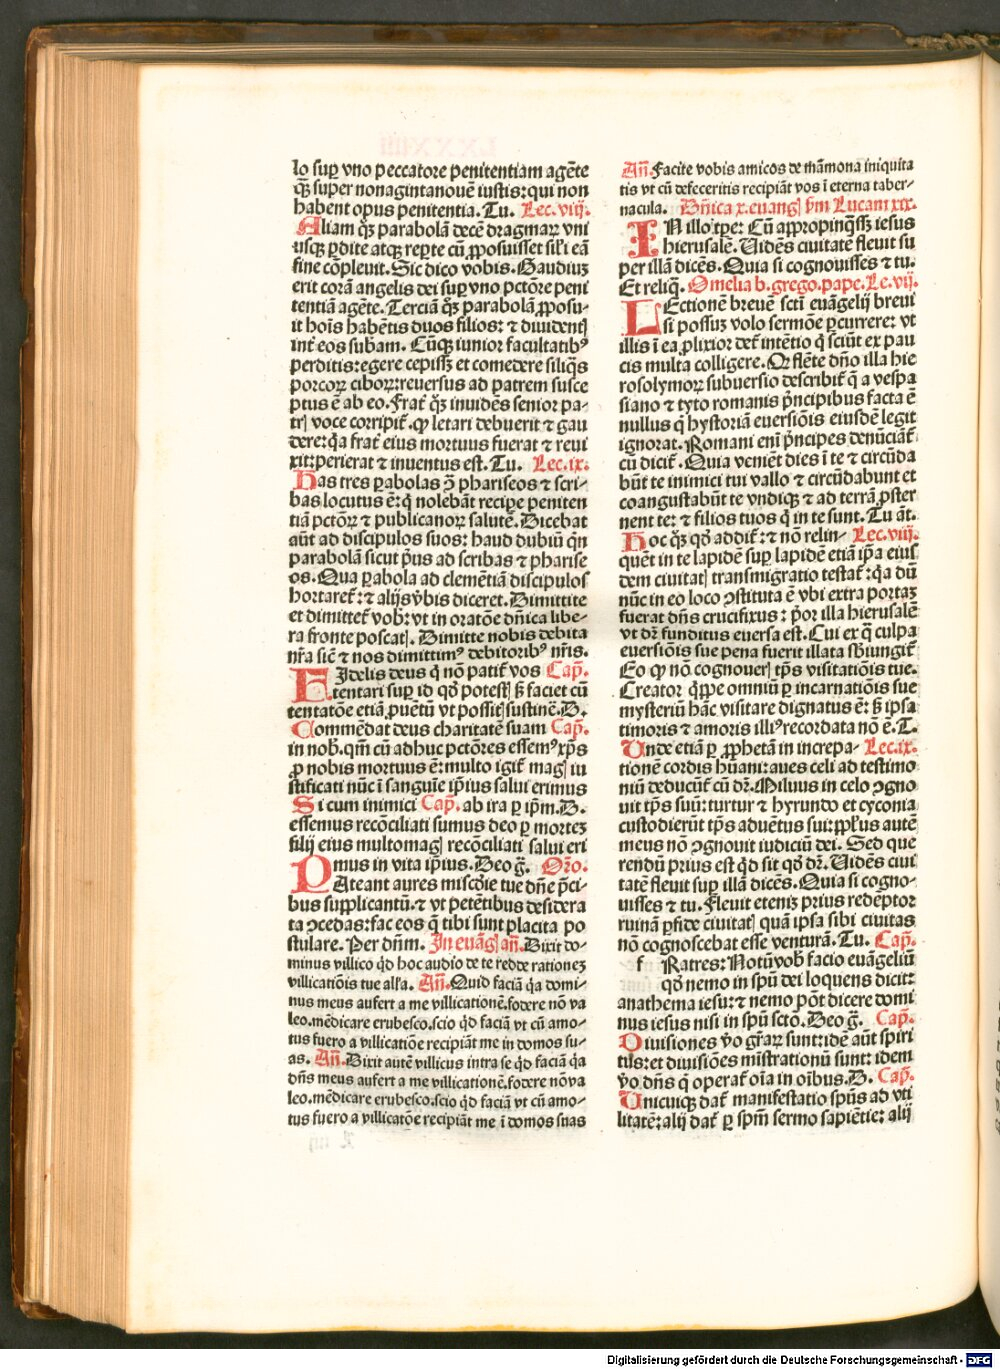 lo sup̱ vno peccatore penitentiam agēte
qz̄ super nonagintanouē iustis: qui non
habent opus penitentia. Tu. Lec. viij.
Aliam qz̄ parabolā decē dragmaꝝ vni
usqz ꝑdite atqz reꝑte cū ꝓposuisset sil'i eā
fine cōpleuit. Sic dico vobis. Gaudiuz
erit corā angelis dei suꝑ vno pctōre peni
tentiā agēte. Terciā qz̄ parabolā ꝓposu-
it hoīs habētis duos filios: ⁊ diuidentꝭ
int̄ eos subam. Cūqz iunior facultatibꝰ
perditis: egere cepissz et comedere siliqs
porcoꝝ ciboꝝ: reuersus ad patrem susce
ptus ē ab eo. Frat̄ qz̄ inuidēs senior pa-
trꝭ voce corripit̄. qꝫ letari debuerit ⁊ gau
dere: qa frat̄ eius mortuus fuerat ⁊ reui
xit: perierat ⁊ inuentus est. Tu. Lec. ix.
Has tres ꝑabolas ꝯ̄ phariseos ⁊ scri-
bas locutus ē: q̇ nolebāt reciꝑe peniten
tiā pctōꝝ ⁊ publicanoꝝ salutē. Dicebat
aūt ad discipulos suos: haud dubiū qn̄
parabolā sicut pus ad scribas ⁊ pharise
os. Qua ꝑabola ad clemētiā discipulos
hortaret̄: ⁊ alijs v̄bis diceret. Dimittite
et dimittet̄ vob̄: vt in oratōe dn̄ica libe-
ra fronte poscatꝭ. Dimitte nobis debita
nr̄a sic̄ ⁊ nos dimittimꝰ debitoribꝰ nr̄is.
FIdelis deus q̇ nō patit̄ vos Cap̄.
tentari suꝑ id qd̄ potestꝭ sꝫ faciet cū
tentatōe etiā ꝓuētū vt possitꝭ sustinē. D.
Commēdat deus charitatē suam Cap̄.
in nob̄. qm̄ cū adhuc pctōres essemꝰ xp̄s
ꝓ nobis mortuus ē: multo igit̄ magꝭ iu
stificati nūc ī sanguīe ip̄ius salui erimus
Si cum inimici Cap̄. ab ira ꝑ ip̄m. D.
essemus recōciliati sumus deo ꝑ mortez
filij eius multomagꝭ recōciliati salui eri
mus in vita ip̄ius. Deo g̅. Or̄o.
PAteant aures misc̄die tue dn̄e p̄ci-
bus supplicantū. ⁊ vt petētibus desidera
ta ꝯcedas: fac eos q̄ tibi sunt placita po
stulare. Per dn̄m. In euāgꝭ an̄. Dixit do-
minus villico qd hoc audio de te redde rationez
villicatiōis tue all'a. An̄. Quid faciā qa domi-
nus meus aufert a me villicationē. fodere nō va
leo. mēdicare erubesco. scio qd faciā vt cū amo-
tus fuero a villicatiōe recipiāt me in domos su-
as. An̄. Dixit autē villicus intra se qd faciā qa
dn̄s meus aufert a me villicationē. fodere nō va
leo. mēdicare erubesco. scio qd faciā vt cū amo-
tus fuero a villicatōe recipiāt me ī domos suas
An̄. Facite vobis amicos de mam̄ona iniquita
tis vt cū defeceritis recipiāt vos ī eterna taber-
nacula. Dn̄ica x. euangꝭ scd̄m Lucam xix.
IN illo tꝑe: Cū appropinqssꝫ iesus
hierusalē. Uidēs ciuitatē fleuit su
per illā dicēs. Quia si cognouisses ⁊ tu.
Et reliq̄. Omelia b. grego. pape. Le. vij.
LEctionē breuē scti euāgelij breui
si possuz volo sermōe ꝑcurrere: vt
illis ī ea ꝓlixior det̄ intētio q̇ sciūt ex pau
cis multa colligere. Qꝫ flēte dn̄o illa hie
rosolymoꝝ subuersio describit̄ q̄ a vespa
siano ⁊ tyto romanis pncipibus facta ē
nullus q̇ hystoriā euersiōis eiusdē legit
ignorat. Romani eni pncipes denūciāt̄
cū dicit̄. Quia veniēt dies ī te ⁊ circūda
būt te inimici tui vallo ⁊ circūdabunt et
coangustabūt te vndiqz ⁊ ad terrā ꝓster
nent te: ⁊ filios tuos q̇ in te sunt. Tu āt.
Hoc qz̄ qd̄ addit̄: ⁊ nō relin- Lec. viij.
quēt in te lapidē suꝑ lapidē etiā ip̄a eius
dem ciuitatꝭ transmigratio testat̄: qa dū
nūc in eo loco ꝯstituta ē vbi extra portaz
fuerat dn̄s crucifixus: p̄or illa hierusalē
vt dr̄ funditus euersa est. Cui ex q̄ culpa
euersiōis sue pena fuerit illata sbiungit̄
Eo qꝫ nō cognouerꝭ tp̄s visitatiōis tue.
Creator qppe omniū ꝑ incarnatiōis sue
mysteriū hāc visitare dignatus ē: sꝫ ipsa
timoris ⁊ amoris illiꝰ recordata nō ē. T.
Unde etiā ꝑ ꝓphetā in increpa- Lec. ix.
tionē cordis hūani: aues celi ad testimo
niū deducūt̄ cū dr̄. Miluus in celo ꝯgno
uit tp̄s suū: turtur ⁊ hyrundo et cyconia
custodierūt tp̄s aduētus sui: ppl'us autē
meus nō ꝯgnouit iudiciū dei. Sed que
rendū prius est qd sit qd̄ dr̄. Uidēs ciui
tatē fleuit suꝑ illā dicēs. Quia si cogno-
uisses ⁊ tu. Fleuit etenīz prius redēptor
ruinā ꝑfide ciuitatꝭ quā ipsa sibi ciuitas
nō cognoscebat esse venturā. Tu. Cap̄.
f Ratres: Notū vob̄ facio euāgeliū
qd̄ nemo in spū dei loquens dicit:
anathema iesu: ⁊ nemo pōt dicere domi
nus iesus nisi in spū sctō. Deo g̅. Cap̄.
Diuisiones v̄o gr̄aꝝ sunt: idē aūt spiri
tus: et diuisiōes mīstrationū sunt: idem
v̄o dn̄s q̇ operat̄ oīa in oībus. D. Cap̄.
Unicuiqz dat̄ manifestatio spūs ad vti
litatē: alij dat̄ ꝑ spm̄ sermo sapiētie: alij
Digitalisierung gefördert durch die Deutsche Forschungsgemeinschaft - DFG